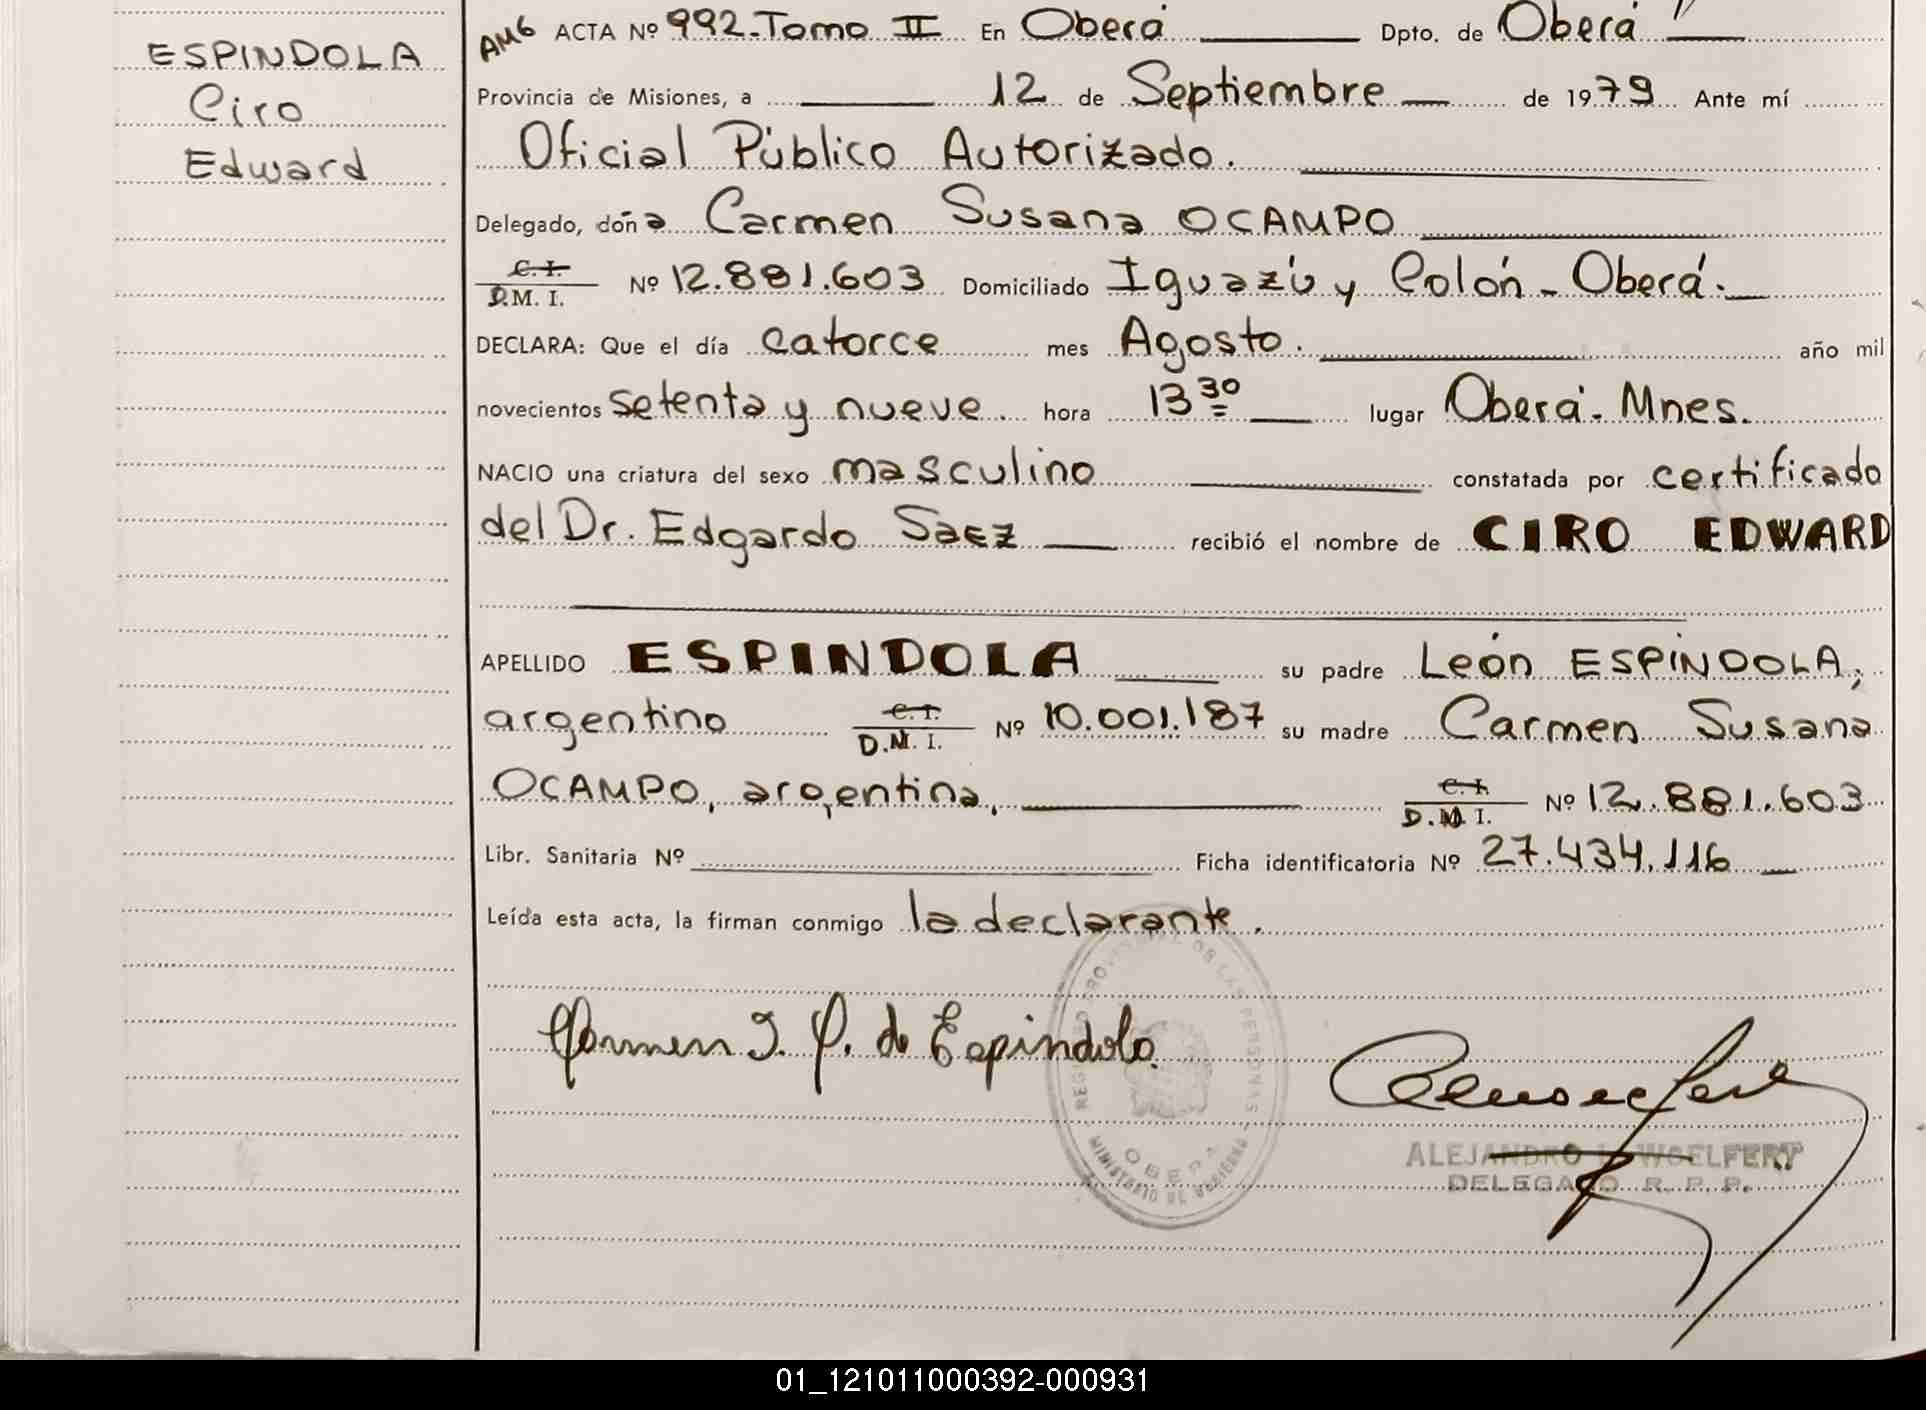 ESPINDOLA
Ciro
Edward
AM6 ACTA Nº 992-Tomo II En Oberá Dpto. de Oberá
Provincia de Misiones, a 12 de Septiembre de 1979 Ante mí
Oficial Público Autorizado.
Delegado, doña Carmen Susana OCAMPO
C.I. D.M.I. Nº 12.881.603 Domiciliado Iguazú y Colón - Oberá.
DECLARA: Que el día catorce mes Agosto. año mil
novecientos setenta y nueve. hora 13 30 lugar Oberá - Mnes.
NACIO una criatura del sexo masculino constatada por certificado
del Dr. Edgardo Saez recibió el nombre de CIRO EDWARD
APELLIDO ESPINDOLA su padre León ESPINDOLA,
argentino C.I. D.M.I. Nº 10.001.187 su madre Carmen Susana
OCAMPO, argentina, C.I. D.M.I. Nº 12.881.603
Libr. Sanitaria Nº Ficha identificatoria Nº 27.434.116
Leída esta acta, la firman conmigo la declarante.
de Espindola
REGISTRO PROVINCIAL DE LAS PERSONAS
OBERA
MINISTERIO DE GOBIERNO
ALEJANDRO WOELFERT
DELEGADO R. P. P.
01_121011000392-000931